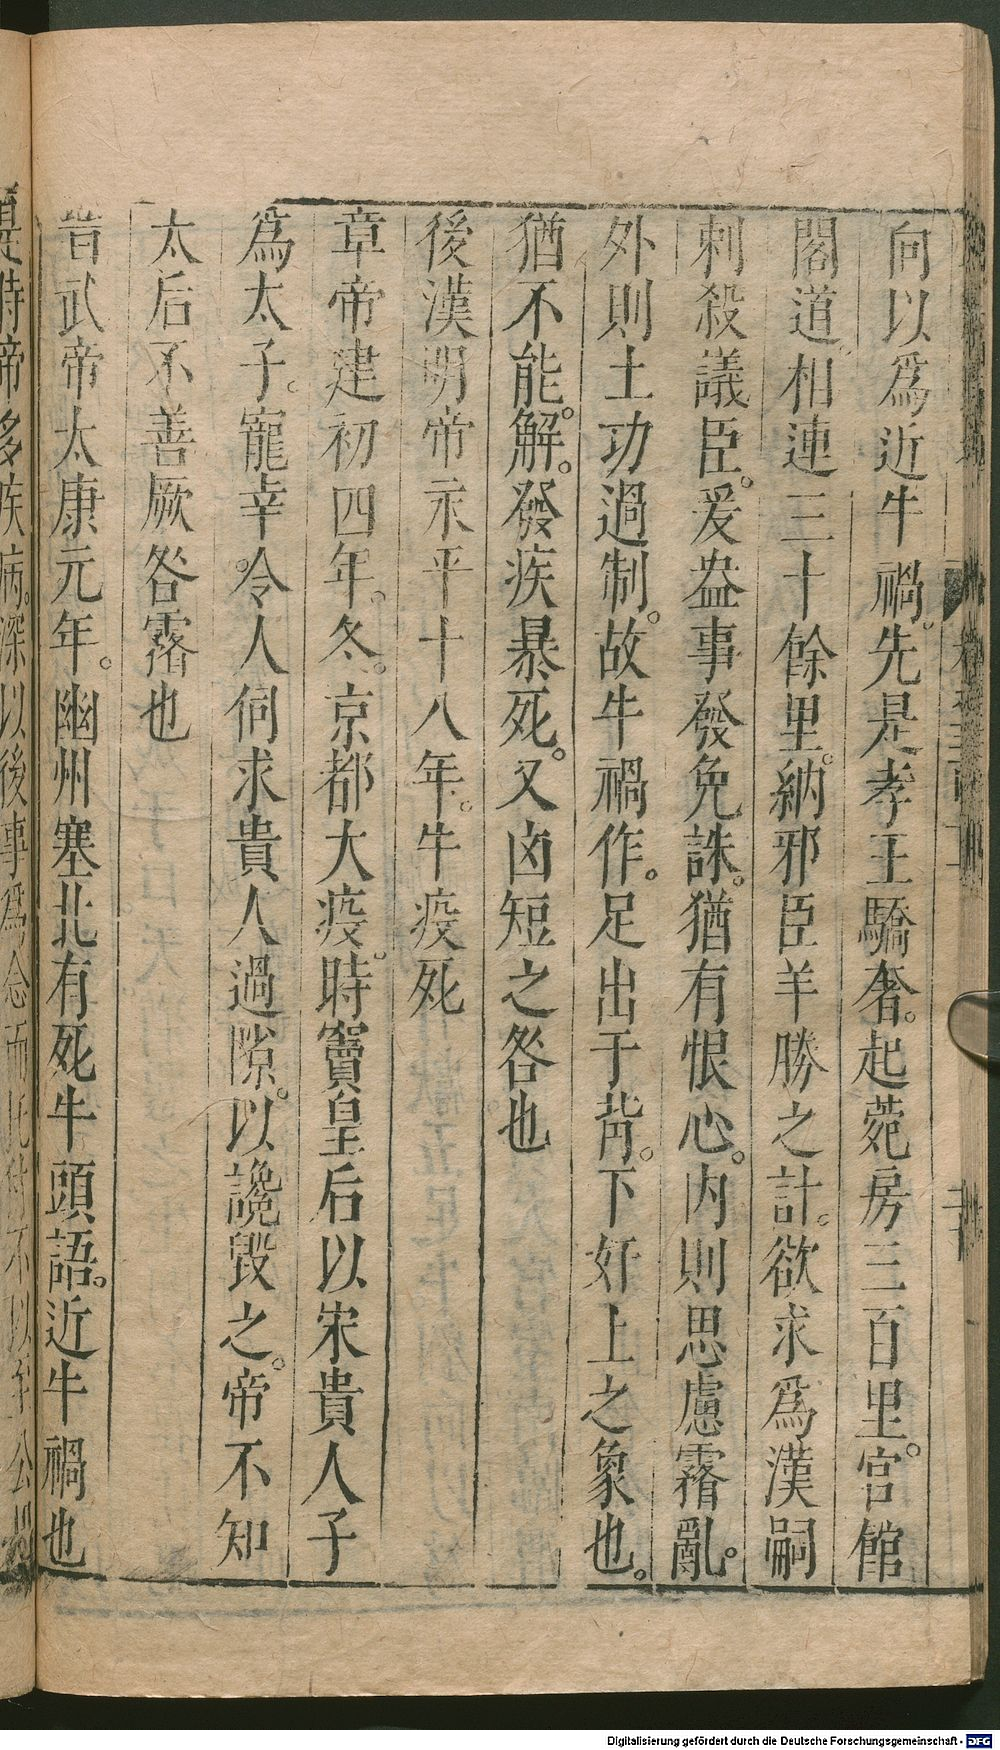 向以爲近牛禍。先是孝王驕奢。起菀房三百里。宮館
閣道。相連三十餘里。納邪臣羊勝之計。欲求爲漢嗣
刺殺議臣。爰盎事發免誅。猶有恨心。內則思慮霿亂。
外則土功過制。故牛禍作。足出于背。下奸上之象也。
猶不能解。發疾暴死。又凶短之咎也
後漢明帝永平十八年。牛疫死
章帝建初四年。冬。京都大疫。時竇皇后以宋貴人子
爲太子。寵幸。令人伺求貴人過隙。以讒毀之。帝不知
太后不善厥咎霿也
晋武帝太康元年。幽州塞北有死牛頭語。近牛禍也
是時帝多疾病。深以後事爲念而託付不以至公
Digitalisierung gefördert durch die Deutsche Forschungsgemeinschaft - DFG